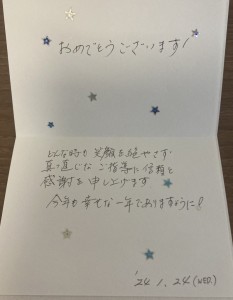 おめでとうございます!
どんな時も笑顔を絶やさず
真っ直ぐなご指導に信頼と
感謝を申し上げます
今年も幸せな一年でありますように!
'24.1.24(WED.)